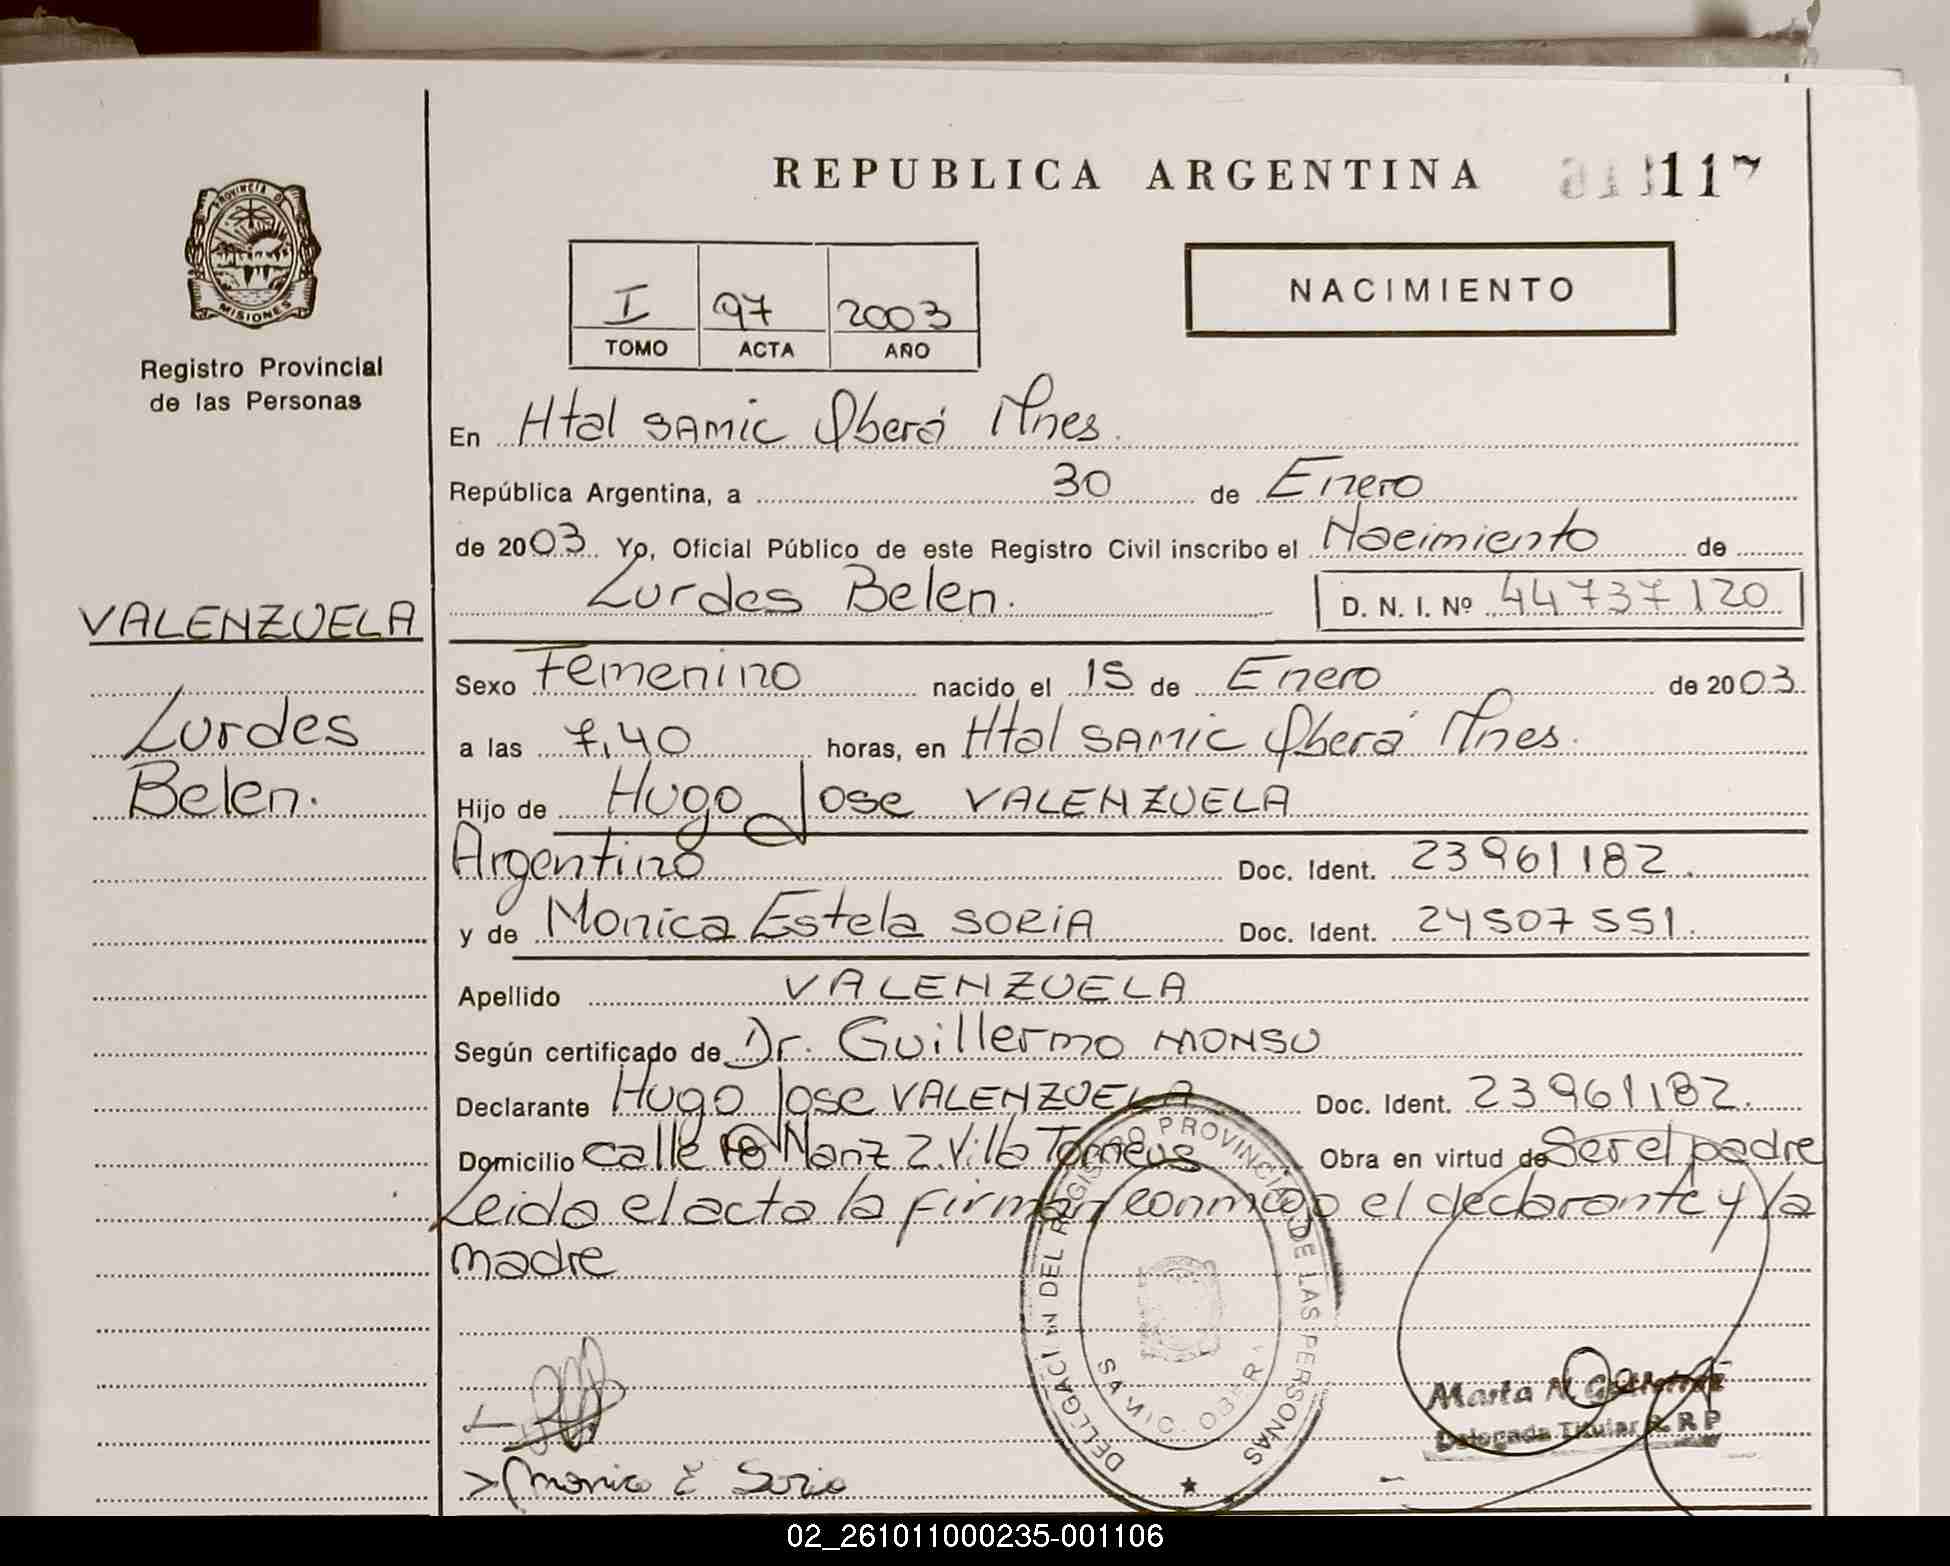 REPUBLICA ARGENTINA 117
PROVINCIA DE
MISIONES
Registro Provincial
de las Personas
I 97 2003
TOMO ACTA AÑO
NACIMIENTO
En Htal SAMIC Oberá Mnes.
República Argentina, a 30 de Enero
de 2003. Yo, Oficial Público de este Registro Civil inscribo el Nacimiento de
Lurdes Belen. D. N. I. Nº 44737120
VALENZUELA
Lurdes
Belen.
Sexo Femenino nacido el 15 de Enero de 2003.
a las 7,40 horas, en Htal SAMIC Oberá Mnes.
Hijo de Hugo Jose VALENZUELA
Argentino Doc. Ident. 23961182.
y de Monica Estela SORIA Doc. Ident. 24507551.
Apellido VALENZUELA
Según certificado de Dr. Guillermo MONSU
Declarante Hugo Jose VALENZUELA Doc. Ident. 23961182.
Domicilio calle Manz 2. Villa Obra en virtud de Ser el padre
Leida el acta la firman conmigo el declarante y la
madre
DELEGACION DEL REGISTRO PROVINCIAL DE LAS PERSONAS
SAMIC. OBERA
Marta N.
Delegada Titular R. R P
Monica E Soria
02_261011000235-001106